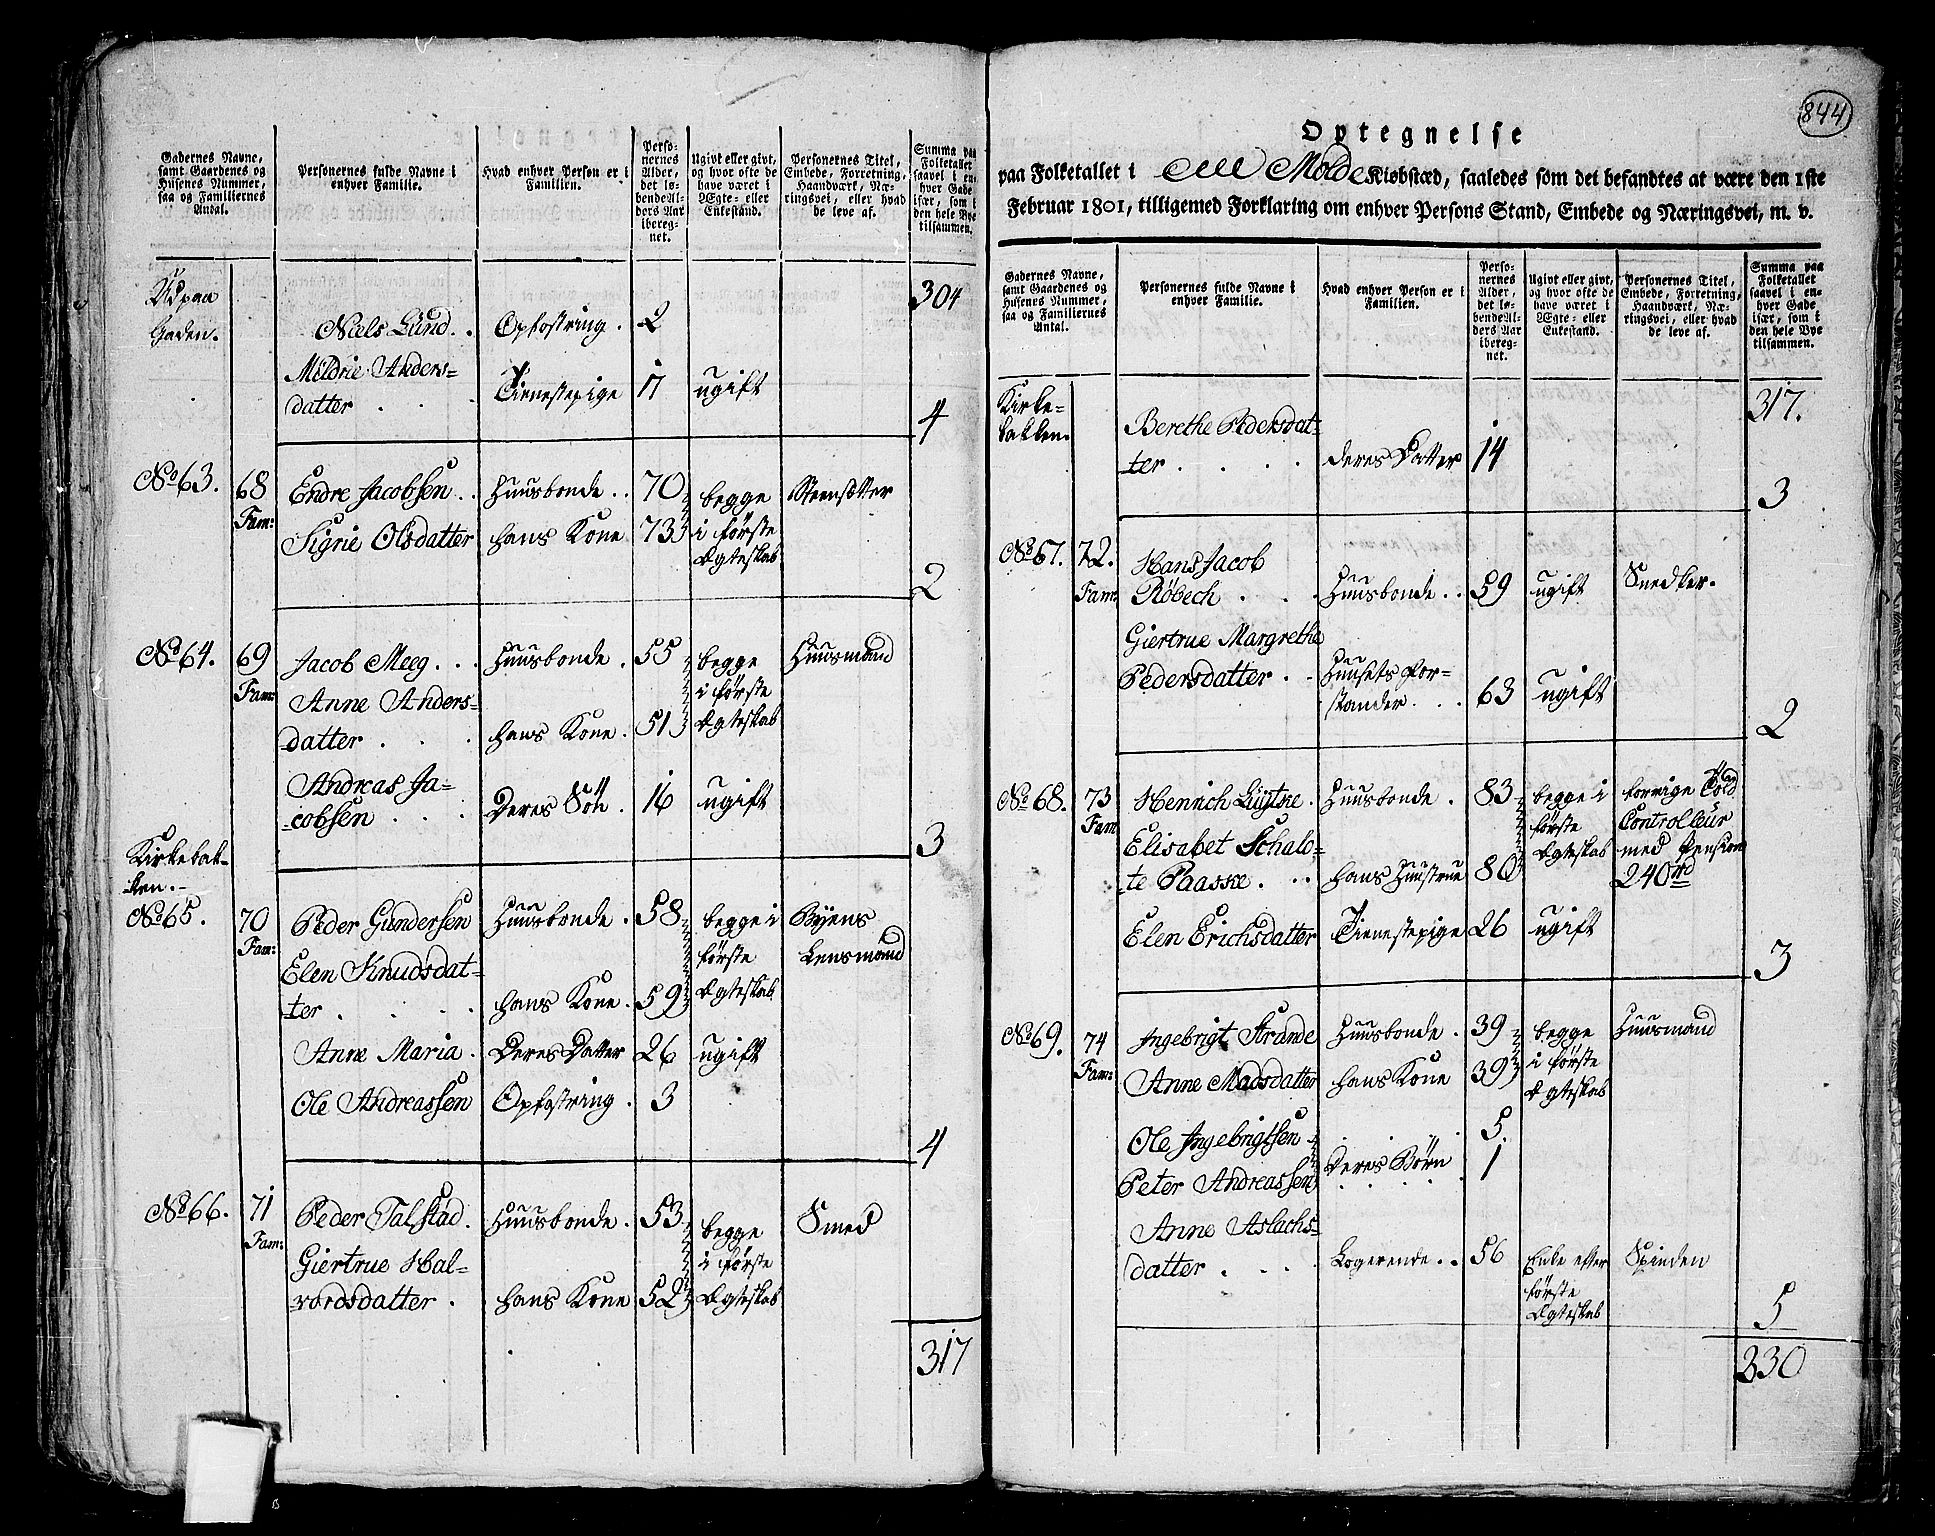 Gadernes Navne, samt Gaardenes og Husenes Nummer, saa og Familiernes Antal.
Personernes fulde Navne i enhver Familie.
Hvad enhver Person er i Familien.
Personernes Alder, det løbende Alders Aar iberegnet.
Ugivt eller givt, og hvor ofte de have været i Ægte- eller Enkestand.
Personernes Titel, Embede, Forretning, Haandværk, Næringsvei, eller hvad de leve af.
Summa paa Folketallet saavel i enhver Gade især, som i den hele Bye tilsammen.
Udpaa Gaden.
304
Niels Lund. . Opfostring . 2
Mildrie Anders=
datter . . . Tienestepige 17 ugift
4
No 63. 68 Fam: Endre Jacobsen . . Huusbonde . . 70 begge Steensætter
Sigrie Olsdatter hans Kone 73 i første Ægteskab
2
No 64. 69 Fam: Jacob Meeg . . . Huusbonde . 55 begge Huusmand
Anne Anders= i første
datter . . . hans Kone . 51 Ægteskab
Andreas Ja=
cobsen . . . Deres Søn . 16 ugift
3
Kirkebak=
ken.
No 65. 70 Fam: Peder Gundersen Huusbonde . 58 begge i Byens
Elen Knudsdat= første Lensmand
ter . . . . hans Kone . 59 Ægteskab
Anne Maria . Deres Datter 26 ugift
Ole Andreassen Opfostring . 3
4
No 66. 71 Fam: Peder Talstad . Huusbonde . 53 begge Smed
Giertrue Hal= i første
vordsdatter . hans Kone 52 Ægteskab
317
844
Optegnelse
paa Folketallet i Molde Kiøbstæd, saaledes som det befandtes at være den 1ste
Februar 1801, tilligemed Forklaring om enhver Persons Stand, Embede og Næringsvei, m. v.
Gadernes Navne, samt Gaardenes og Husenes Nummer, saa og Familiernes Antal.
Personernes fulde Navne i enhver Familie.
Hvad enhver Person er i Familien.
Personernes Alder, det løbende Alders Aar iberegnet.
Ugivt eller givt, og hvor ofte de have været i Ægte- eller Enkestand.
Personernes Titel, Embede, Forretning, Haandværk, Næringsvei, eller hvad de leve af.
Summa paa Folketallet saavel i enhver Gade især, som i den hele Bye tilsammen.
Kirke=
bakken.
317.
Berethe Pedersdat=
ter . . . . deres Datter 14
3
No 67. 72. Fam: Hans Jacob
Röbech . . . Huusbonde . . 59 ugift Snedker.
Giertrue Margrethe
Pedersdatter . . Huusets For=
stander . . . 63 ugift
2
No 68. 73 Fam Henrich Lügtke . Huusbonde . 83 begge i forrige Told
Elisabet Schalo= første Controlleur
te Paaske . . . hans Huustrue 80 Ægteskab med Pension 240 rd
Elen Erichsdatter Tienestepige 26 ugift
3
No 69. 74 Fam: Ingebrigt Strande Huusbonde . 39 begge Huusmand
Anne Madsdatter hans Kone 39 i første Ægteskab
Ole Ingebrigtsen 5.
Peter Andreassen Deres Børn 1
Anne Aslachs=
datter . . . . Logerende . . 56 Enke efter Spinden
første
Ægteskab
5
330